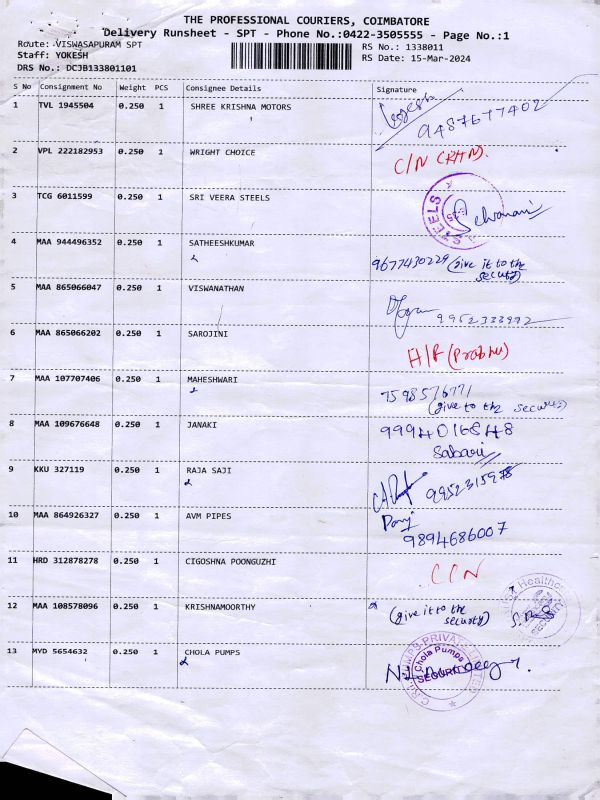 THE PROFESSIONAL COURIERS, COIMBATORE
Delivery Runsheet - SPT - Phone No.:0422-3505555 - Page No.:1
Route: VISWASAPURAM SPT
RS No.: 1338011
Staff: YOKESH
RS Date: 15-Mar-2024
DRS No.: DCJB133801101
S No Consignment No Weight PCS Consignee Details Signature
1 TVL 1945504 0.250 1 SHREE KRISHNA MOTORS
9487677402
2 VPL 222182953 0.250 1 WRIGHT CHOICE C/N (RHN).
3 TCG 6011599 0.250 1 SRI VEERA STEELS
STEELS
Selvarani
4 MAA 944496352 0.250 1 SATHEESHKUMAR
9677430229 (give it to the
security)
5 MAA 865066047 0.250 1 VISWANATHAN
9952333992
6 MAA 865066202 0.250 1 SAROJINI
H/F (Prabhu)
7 MAA 107707406 0.250 1 MAHESHWARI
7598576771
(give to the security)
8 MAA 109676648 0.250 1 JANAKI 9994016848
Sabari
9 KKU 327119 0.250 1 RAJA SAJI
9952315978
10 MAA 864926327 0.250 1 AVM PIPES
9894686007
11 HRD 312878278 0.250 1 CIGOSHNA POONGUZHI C/N
Healthcare
12 MAA 108578096 0.250 1 KRISHNAMOORTHY (give it to the
security)
13 MYD 5654632 0.250 1 CHOLA PUMPS
PUMPS PRIVATE LIMITED
Chola Pumps
SECURITY